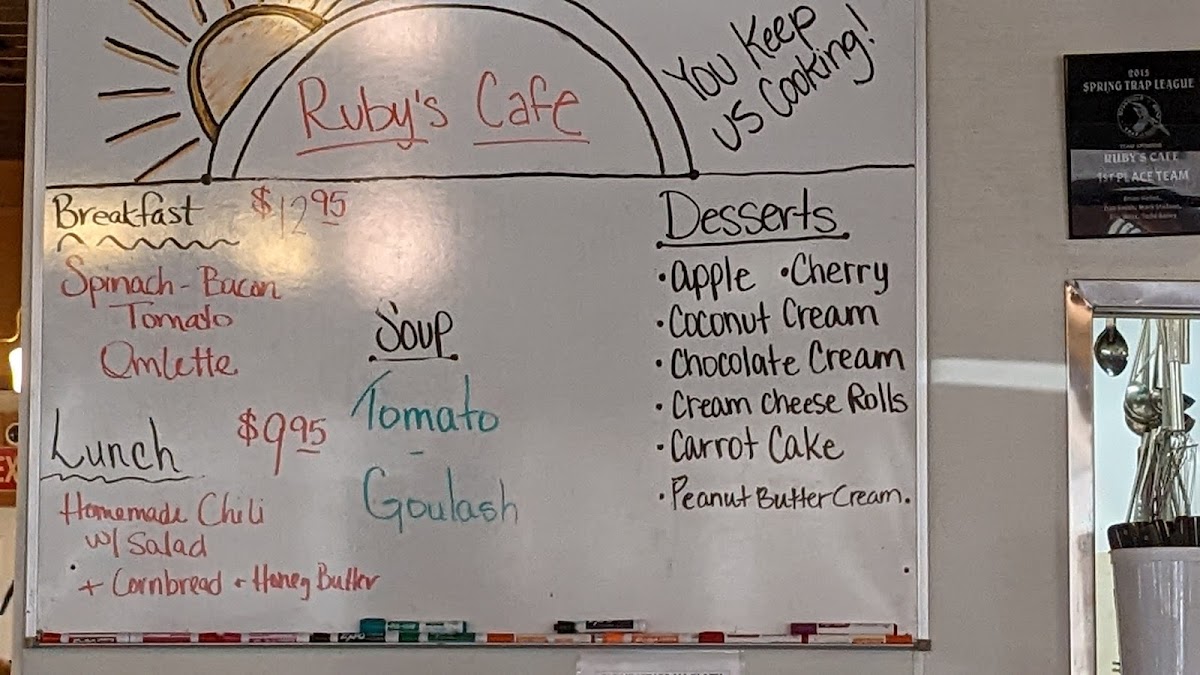 Ruby's Cafe
You Keep
us Cooking!
Breakfast $12.95
Spinach - Bacon
Tomato
Omlette
Lunch $9.95
Homemade Chili
w/ Salad
+ Cornbread + Honey Butter
Soup
Tomato
-
Goulash
Desserts
•apple •Cherry
•Coconut Cream
•Chocolate Cream
•Cream cheese Rolls
•Carrot Cake
•Peanut Butter Cream.
2015
SPRING TRAP LEAGUE
RUBY'S CAFE
1ST PLACE TEAM
EX
EXPO